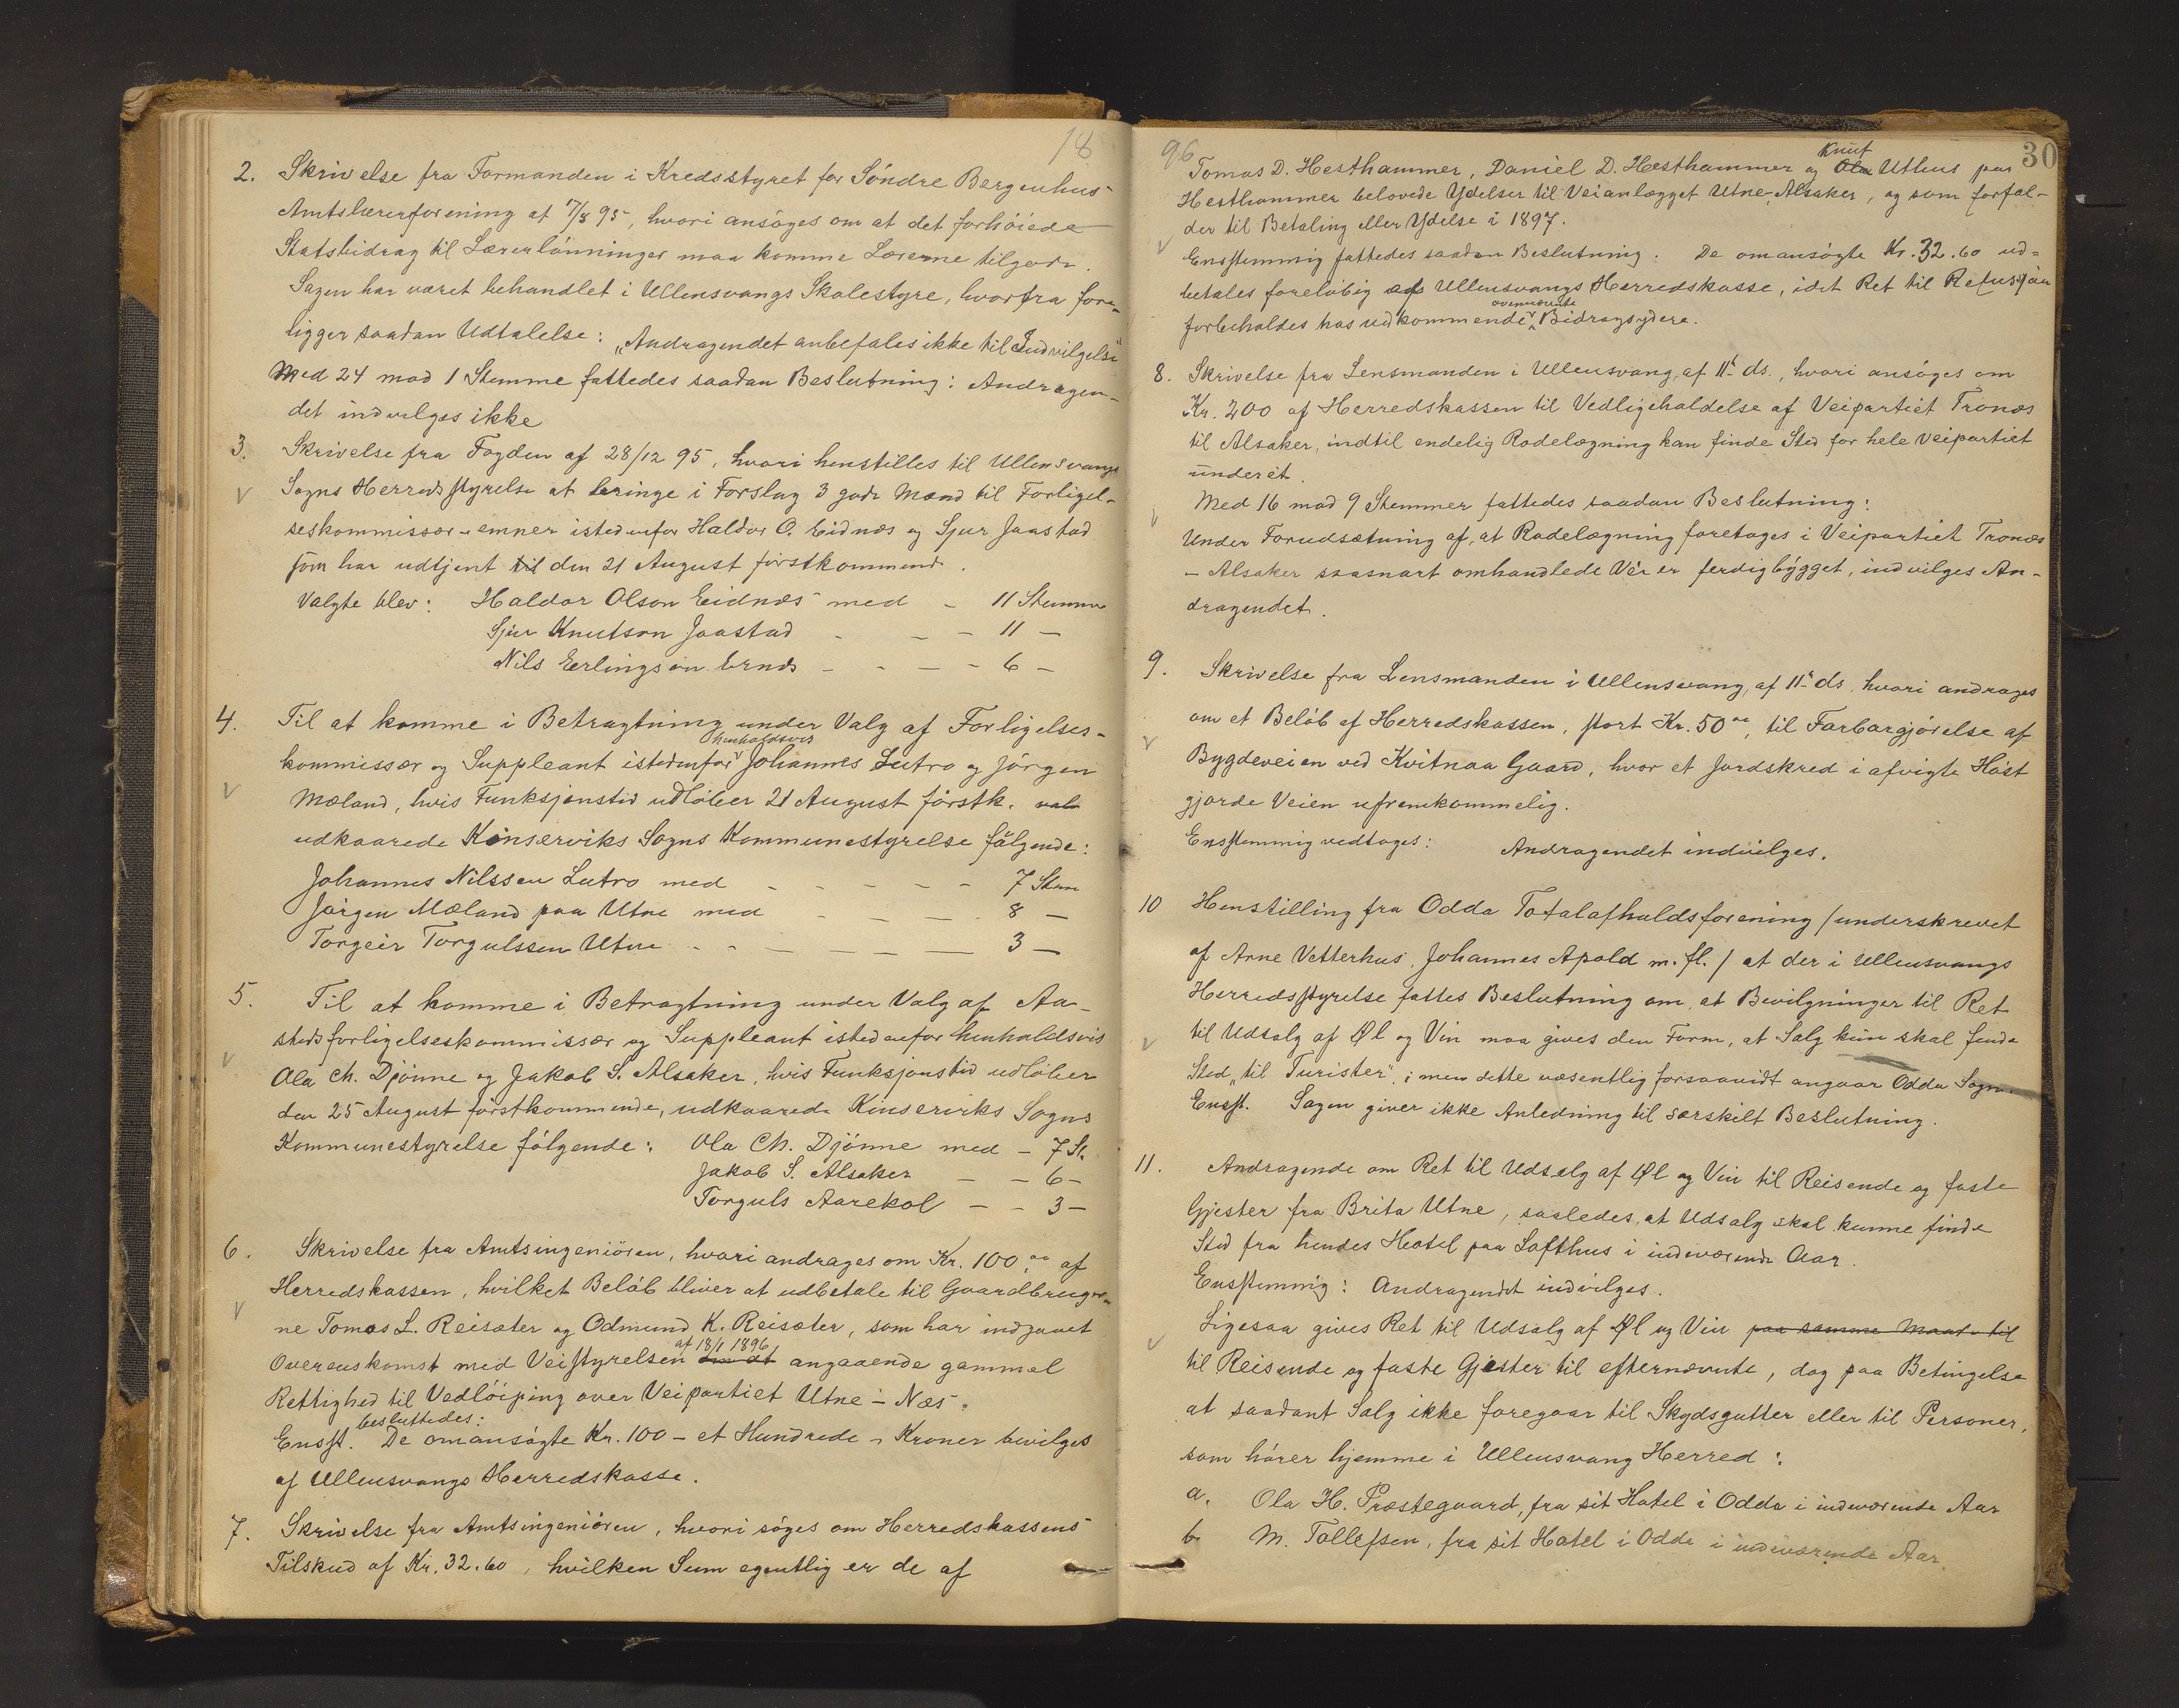 18
2. Skrivelse fra Formanden i Kredsstyret for Söndre Bergenhus
Amtslærerforening af 17/8 95, hvori ansöges om at det forhöiede
Statsbidrag til Lærerlönninger maa komme Lærerne tilgode.
Sagen har været behandlet i Ullensvangs Skolestyre, hvorfra fore-
ligger saadan Udtalelse: „Andragendet anbefales ikke til Indvilgelse"
Med 24 mod 1 Stemme fattedes saadan Beslutning: Andragen-
det indvilges ikke
3. Skrivelse fra Fogden af 28/12 95, hvori henstilles til Ullensvangs
V Sogns Herredsstyrelse at bringe i Forslag 3 gode Mænd til Forligel-
seskommissær-emner istedenfor Haldor O. Eidnæs og Sjur Jaastad
som har udtjent til den 21 August förstkommende.
Valgte blev: Haldor Olson Eidnæs med - 11 Stemmer
Sjur Knutson Jaastad - - - 11 -
Nils Eerlingson - - - - 6 -
4. Til at komme i Betragtning under Valg af Forligelses-
henholdsvis
kommissær og Suppleant istedenfor Johannes Lutro og Jörgen
V Mæland, hvis Funksjonstid udlöber 21 August förstk. valg
udkaarede Kinserviks Sogns Kommunestyrelse fölgende:
Johannes Nilssen Lutro med - - - - - 7 Stem
Jörgen Mæland paa Utne med - - - - 8 -
Torgeir Torgulssen Utne - - - - - 3 -
5. Til at komme i Betragtning under Valg af Aa-
stedsforligelseskommissær og Suppleant istedenfor henholdsvis
V Ola Ch. Djönne og Jakob S. Alsaker, hvis Funksjonstid udlöber
den 25 August förstkommende, udkaarede Kinserviks Sogns
Kommunestyrelse fölgende: Ola Ch. Djönne med - 7 St.
Jakob S. Alsaker - - 6 -
Torguls Aarekol - - 3 -
6. Skrivelse fra Amtsingeniören, hvori andrages om Kr. 100,00 af
Herredskassen, hvilket Belöb bliver at udbetale til Gaardbruger-
V ne Tomas L. Reisæter og Odmund K. Reisæter, som har indgaaet
af 18/1 1896
Overenskomst med Veistyrelsen om at angaaende gammel
Rettighed til Vedlöiping over Veipartiet Utne - Næs.
besluttedes:
Ensst. De omansögte Kr. 100 - et Hundrede - Kroner bevilges
af Ullensvangs Herredskasse.
7. Skrivelse fra Amtsingeniören, hvori söges om Herredskassens
Tilskud af Kr. 32.60, hvilken Sum egentlig er de af
96
30
Knut
Tomas D. Hesthammer, Daniel D. Hesthammer og Ola Uthus paa
Hesthammer belovede Ydelser til Veianlægget Utne-Alsaker, og som forfal-
V der til Betaling eller Ydelse i 1897.
Enstemmig fattedes saadan Beslutning: De omansögte Kr. 32.60 ud-
betales foreløbig af Ullensvangs Herredskasse, idet Ret til Refusjon
ovennævnte
forbeholdes hos vedkommende Bidragsydere.
8. Skrivelse fra Lensmanden i Ullensvang, af 11te ds., hvori ansöges om
Kr. 200 af Herredskassen til Vedligeholdelse af Veipartiet Tronæs
til Alsaker, indtil endelig Rodelægning kan finde Sted for hele Veipartiet
underét.
Med 16 mod 9 Stemmer fattedes saadan Beslutning:
V Under Forudsætning af, at Rodelægning foretages i Veipartiet Tronæs
- Alsaker saasnart omhandlede Vei er ferdigbygget, indvilges An-
dragendet.
9. Skrivelse fra Lensmanden i Ullensvang, af 11te ds, hvori andrages
om et Belöb af Herredskassen, stort Kr. 50,00, til Farbargjörelse af
V Bygdeveien ved Kvitnaa Gaard, hvor et Jordskred i afvigte Höst
gjorde Veien ufremkommelig.
Enstemmig vedtoges: Andragendet indvilges.
10 Henstilling fra Odda Totalafholdsforening /underskrevet
af Arne Vetterhus, Johannes Apold m.fl./ at der i Ullensvangs
Herredsstyrelse fattes Beslutning om, at Bevilgninger til Ret
V til Udsalg af Øl og Vin maa gives den Form, at Salg kun skal finde
Sted „til Turister", men dette væsentlig forsaavidt angaar Odda Sogn.
Enst. Sagen giver ikke Anledning til særskilt Beslutning.
11. Andragende om Ret til Udsalg af Øl og Vin til Reisende og faste
Gjester fra Brita Utne, saaledes, at Udsalg skal kunne finde
Sted fra hendes Hotel paa Lofthus i indeværende Aar.
Enstemmig: Andragendet indvilges.
Ligesaa gives Ret til Udsalg af Øl og Vin paa samme Maade til
V til Reisende og faste Gjester til efternævnte, dog paa Betingelse
at saadant Salg ikke foregaar til Skydsgutter eller til Personer,
som hörer hjemme i Ullensvang Herred:
a. Ola H. Præstegaard, fra sit Hotel i Odda i indeværende Aar
b. M. Tollefsen, fra sit Hotel i Odda i indeværende Aar